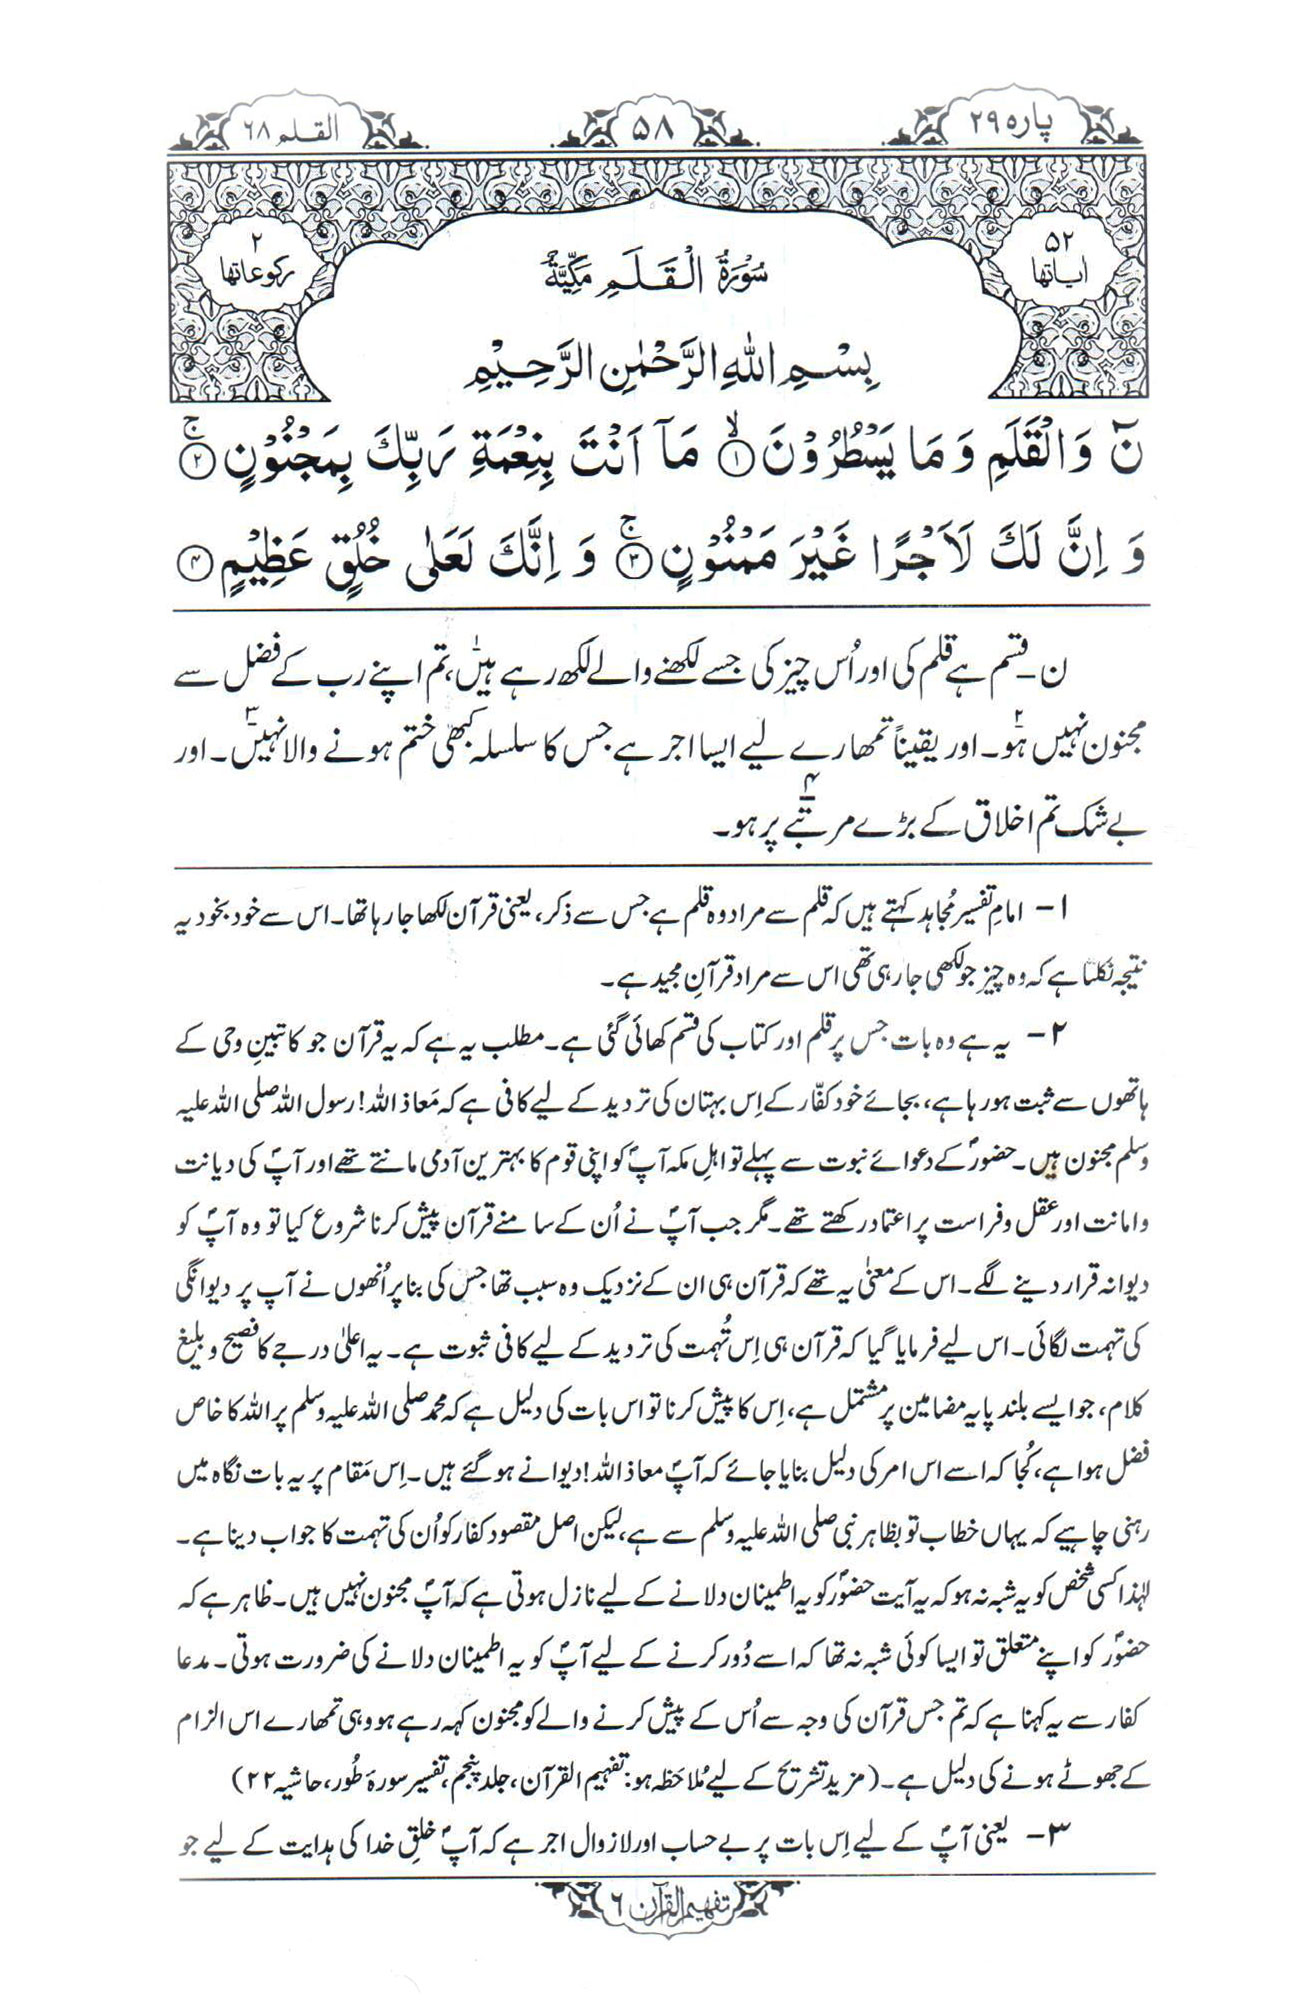 پارہ ۲۹
۵۸
القلم ۶۸
۵۲
ایاتہا
۲
رکوعاتہا
سُوْرَةُ الْقَلَمِ مَکِّیَّةٌ
بِسْمِ اللهِ الرَّحْمٰنِ الرَّحِیْمِ
نٓ وَالْقَلَمِ وَمَا یَسْطُرُوْنَ ۙ﴿۱﴾ مَاۤ اَنْتَ بِنِعْمَةِ رَبِّكَ بِمَجْنُوْنٍ ۚ﴿۲﴾
وَ اِنَّ لَكَ لَاَجْرًا غَیْرَ مَمْنُوْنٍ ۚ﴿۳﴾ وَ اِنَّكَ لَعَلٰی خُلُقٍ عَظِیْمٍ ﴿۴﴾
ن۔ قسم ہے قلم کی اور اُس چیز کی جسے لکھنے والے لکھ رہے ہیں۱، تم اپنے رب کے فضل سے
مجنون نہیں ہو۲۔ اور یقیناً تمھارے لیے ایسا اجر ہے جس کا سلسلہ کبھی ختم ہونے والا نہیں۳۔ اور
بے شک تم اخلاق کے بڑے مرتبے پر ہو۴۔
۱- امامِ تفسیر مُجاہد کہتے ہیں کہ قلم سے مراد وہ قلم ہے جس سے ذکر، یعنی قرآن لکھا جا رہا تھا۔ اس سے خود بخود یہ
نتیجہ نکلتا ہے کہ وہ چیز جو لکھی جا رہی تھی اس سے مراد قرآنِ مجید ہے۔
۲- یہ ہے وہ بات جس پر قلم اور کتاب کی قسم کھائی گئی ہے۔ مطلب یہ ہے کہ یہ قرآن جو کاتبینِ وحی کے
ہاتھوں سے ثبت ہو رہا ہے، بجائے خود کفّار کے اِس بہتان کی تردید کے لیے کافی ہے کہ مَعاذ اللہ! رسول اللہ صلی اللہ علیہ
وسلم مجنون ہیں۔ حضورؐ کے دعوائے نبوت سے پہلے تو اہلِ مکہ آپؐ کو اپنی قوم کا بہترین آدمی مانتے تھے اور آپؐ کی دیانت
و امانت اور عقل و فراست پر اعتماد رکھتے تھے۔ مگر جب آپؐ نے اُن کے سامنے قرآن پیش کرنا شروع کیا تو وہ آپؐ کو
دیوانہ قرار دینے لگے۔ اس کے معنٰی یہ تھے کہ قرآن ہی ان کے نزدیک وہ سبب تھا جس کی بنا پر اُنھوں نے آپ پر دیوانگی
کی تہمت لگائی۔ اس لیے فرمایا گیا کہ قرآن ہی اِس تُہمت کی تردید کے لیے کافی ثبوت ہے۔ یہ اعلیٰ درجے کا فصیح و بلیغ
کلام، جو ایسے بلند پایہ مضامین پر مشتمل ہے، اِس کا پیش کرنا تو اس بات کی دلیل ہے کہ محمد صلی اللہ علیہ وسلم پر اللہ کا خاص
فضل ہوا ہے، کُجا کہ اسے اس امر کی دلیل بنایا جائے کہ آپؐ معاذ اللہ! دیوانے ہو گئے ہیں۔ اِس مَقام پر یہ بات نگاہ میں
رہنی چاہیے کہ یہاں خطاب تو بظاہر نبی صلی اللہ علیہ وسلم سے ہے، لیکن اصل مقصود کفار کو اُن کی تہمت کا جواب دینا ہے۔
لہٰذا کسی شخص کو یہ شبہ نہ ہو کہ یہ آیت حضورؐ کو یہ اطمینان دلانے کے لیے نازل ہوتی ہے کہ آپؐ مجنون نہیں ہیں۔ ظاہر ہے کہ
حضورؐ کو اپنے متعلق تو ایسا کوئی شبہ نہ تھا کہ اسے دُور کرنے کے لیے آپؐ کو یہ اطمینان دلانے کی ضرورت ہوتی۔ مدعا
کفار سے یہ کہنا ہے کہ تم جس قرآن کی وجہ سے اُس کے پیش کرنے والے کو مجنون کہہ رہے ہو وہی تمھارے اس الزام
کے جھوٹے ہونے کی دلیل ہے۔ (مزید تشریح کے لیے مُلاحَظہ ہو: تفہیم القرآن، جلد پنجم، تفسیر سورۂ طُور، حاشیہ ۲۲)
۳- یعنی آپؐ کے لیے اِس بات پر بے حساب اور لازوال اجر ہے کہ آپؐ خلقِ خدا کی ہدایت کے لیے جو
تفہیم القرآن ۶